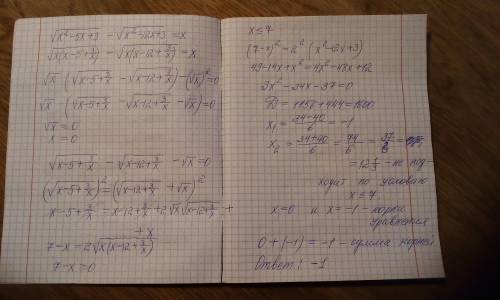 √(x²-5x+3) - √(x²-12x+3) = x
√(x(x-5+3/x)) - √(x(x-12+3/x)) = x
√x · (√(x-5+3/x) - √(x-12+3/x)) - (√x)² = 0
√x · (√(x-5+3/x) - √(x-12+3/x) - √x) = 0
√x = 0
x = 0
√(x-5+3/x) - √(x-12+3/x) - √x = 0
(√(x-5+3/x))² = (√(x-12+3/x) + √x)²
x-5+3/x = x-12+3/x + 2√x√(x-12+3/x) +
+ x
7-x = 2√(x(x-12+3/x))
7-x ≥ 0
x ≤ 7
(7-x)² = 2² (x²-12x+3)
49-14x+x² = 4x²-48x+12
3x²-34x-37=0
D = 1156+444=1600
x₁ = (34-40)/6 = -1
x₂ = (34+40)/6 = 74/6 = 37/3 =
= 12 1/3 - не под-
ходит по условию
x ≤ 7
x=0 и x=-1 - корни
уравнения
0+(-1) = -1 - сумма корней
Ответ: -1